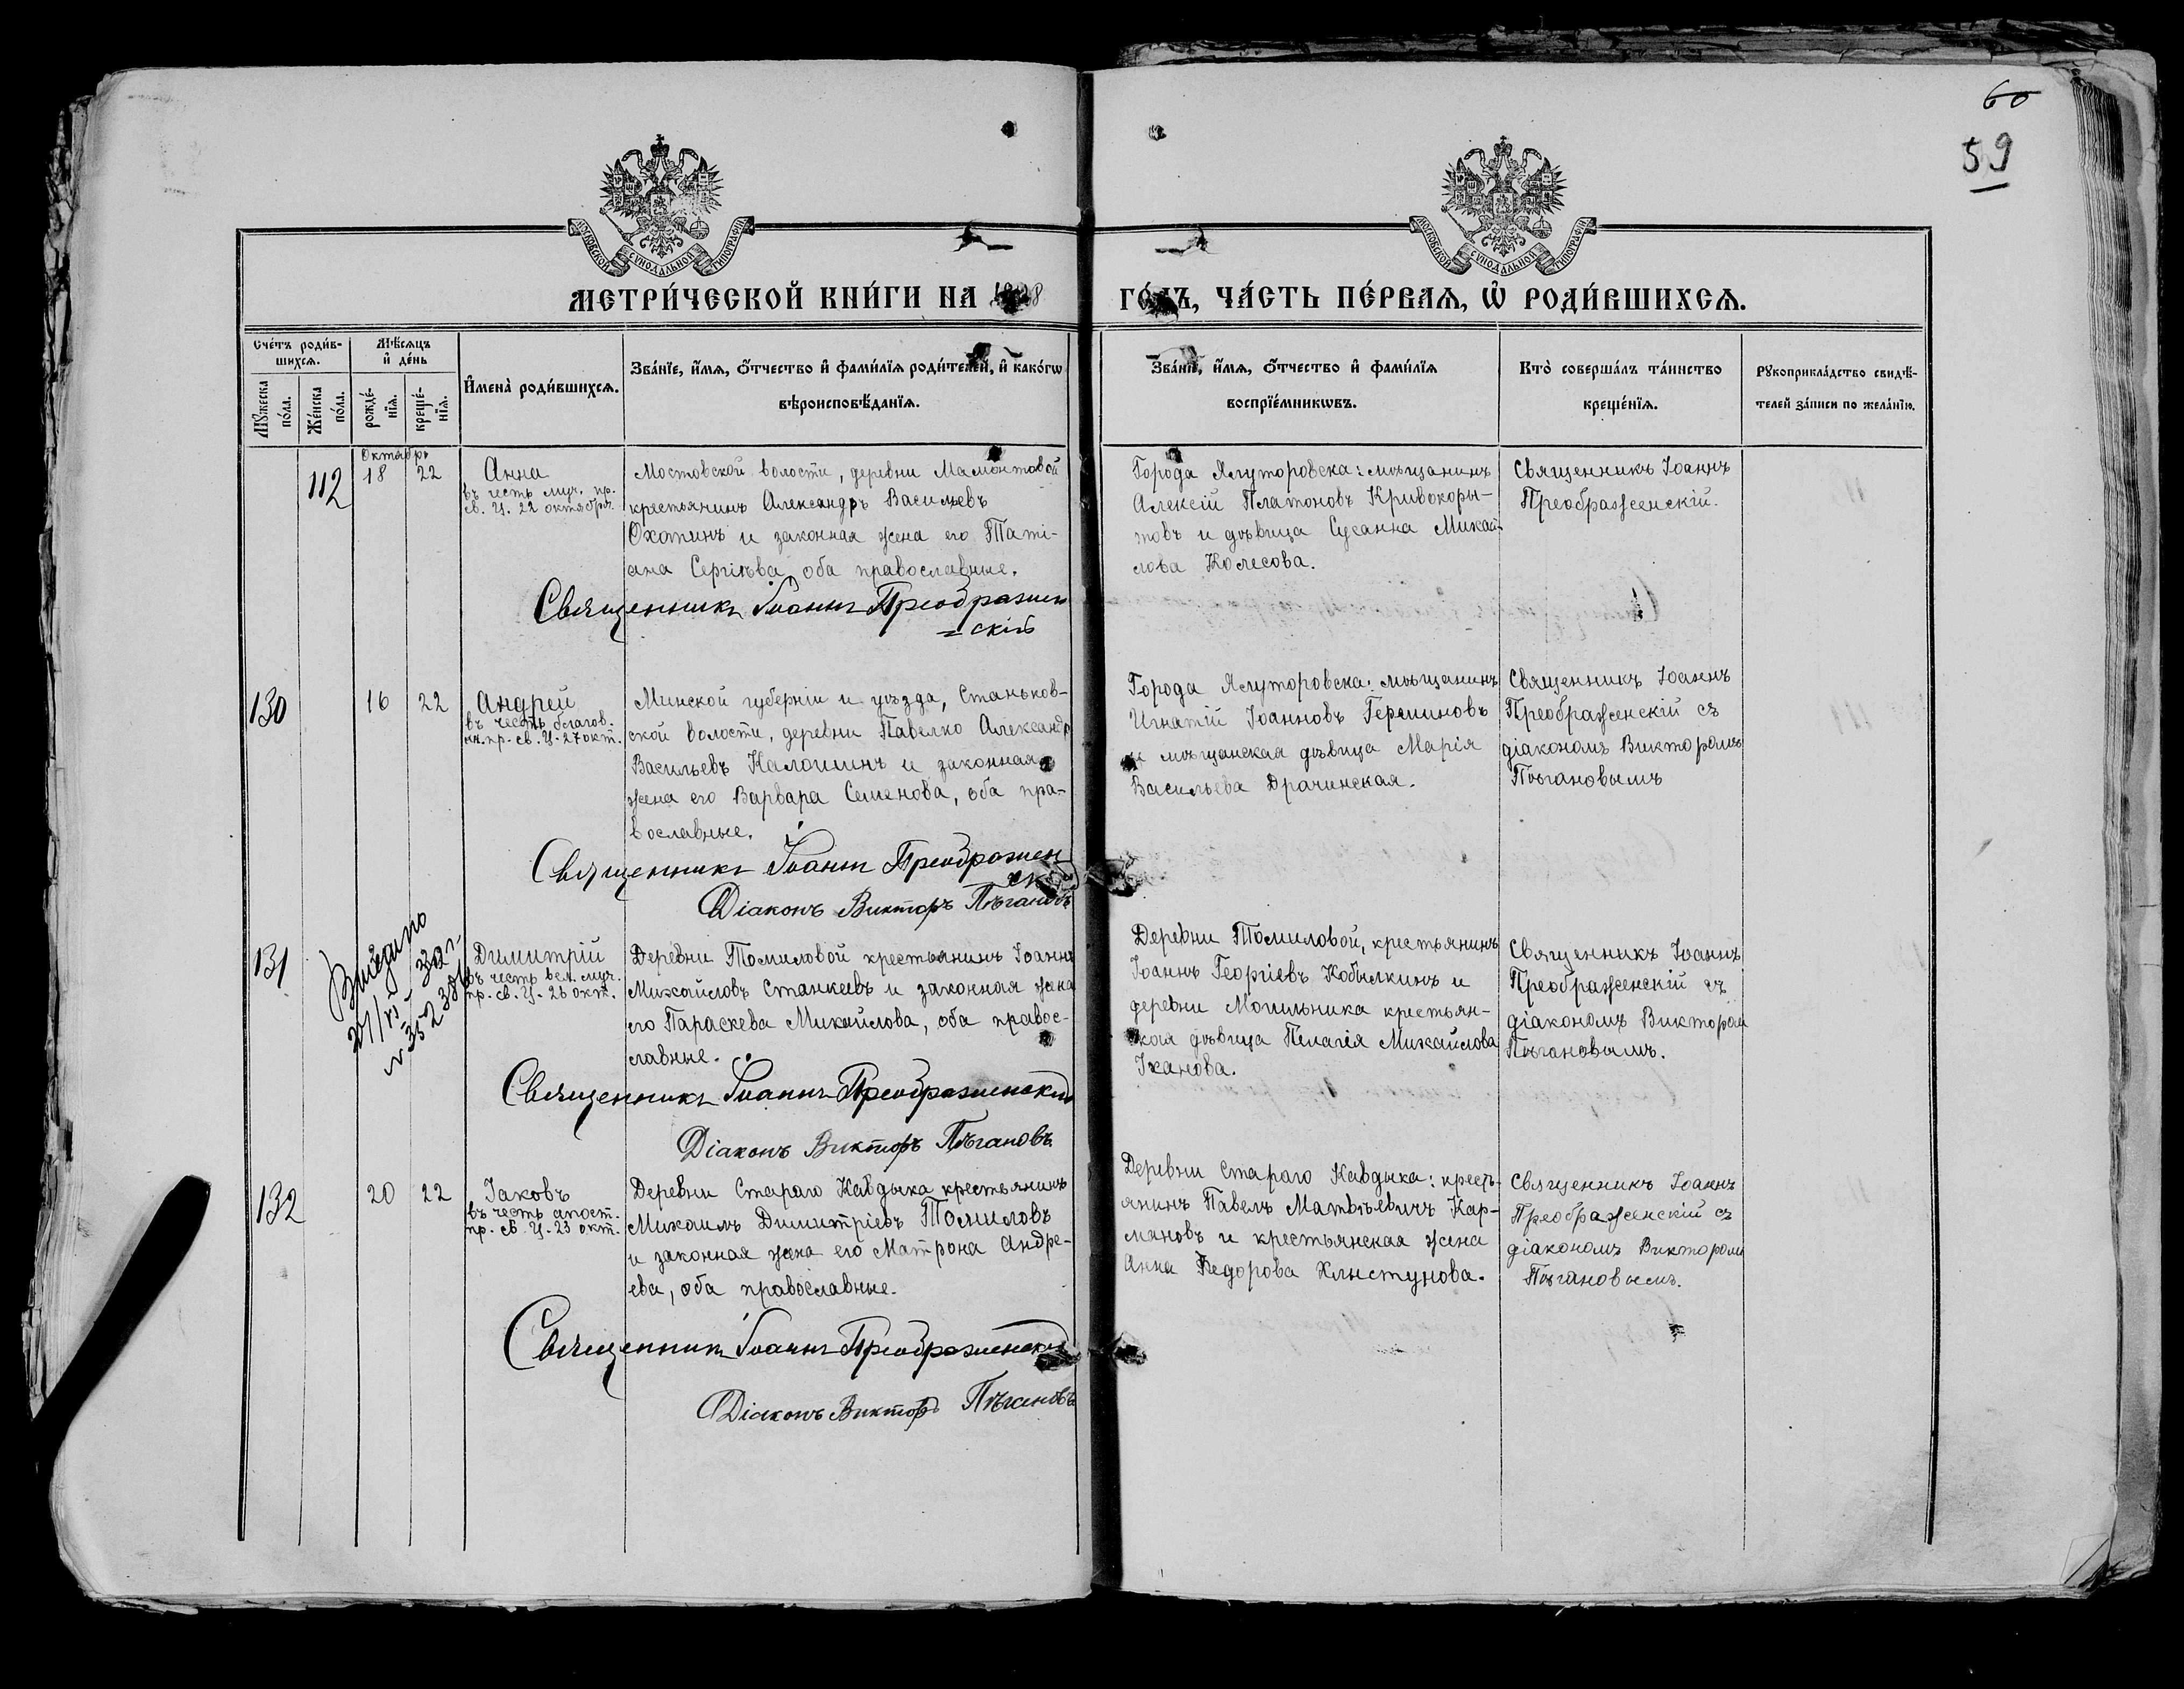 60
59
МОСКОВСКОЙ СѴНОДАЛЬНОЙ ТИПОГРАФІИ
МОСКОВСКОЙ СѴНОДАЛЬНОЙ ТИПОГРАФІИ
МЕТРИ́ЧЕСКОЙ КНИ́ГИ НА
ГО́ДЪ, ЧА́СТЬ ПЕ́РВАЯ, Ѡ҆ РОДИ́ВШИХСЯ.
Сче́тъ роди́в-
шихся.
Мѣ́сяцъ
и҆ де́нь
Мꙋ́жеска
по́ла.
Же́нска
по́ла.
рожде́-
нїя.
креще́-
нїя.
И҆мена̀ роди́вшихся.
Зва́нїе, и҆́мя, ѻ҆́тчество и҆ фами́лїя роди́телей, и҆ како́гѡ
вѣроисповѣ́данїя.
Зва́нїе, и҆́мя, ѻ҆́тчество и҆ фами́лїя
воспрїе́мникѡвъ.
Кто̀ соверша́лъ та́инство
креще́нїя.
Рꙋкоприкла́дство свидѣ́-
телей за́писи по жела́нїю.
Октябрь
112
18
22
Анна
въ честь муч. пр.
св. Ц. 22 октября.
Мостовской волости, деревни Мамонтовой
крестьянинъ Александръ Васильевъ
Охотинъ и законная жена его Таті-
ана Сергіева, оба православные.
Священникъ Іоаннъ Преображен
=скій
Города Ялуторовска: мѣщанинъ
Алексій Платоновъ Кривокоры-
товъ и дѣвица Сусанна Михай-
лова Колесова.
Священникъ Іоаннъ
Преображенскій.
130
16
22
Андрей
въ честь благов.
кн. пр. св. Ц. 27 окт.
Минской губерніи и уѣзда, Станьков-
ской волости, деревни Павелко Александръ
Васильевъ Калошинъ и законная
жена его Варвара Семенова, оба пра-
вославные.
Священникъ Іоаннъ Преображен
Діаконъ Викторъ Пѣгановъ
Города Ялуторовска: мѣщанинъ
Игнатій Іоанновъ Герминовъ
и мѣщанская дѣвица Марія
Васильева Драчинская.
Священникъ Іоаннъ
Преображенскій съ
діакономъ Викторомъ
Пѣгановымъ
131
Димитрій
въ честь вел. муч.
пр. св. Ц. 26 окт.
Деревни Томиловой крестьянинъ Іоаннъ
Михайловъ Станкевъ и законная жена
его Параскева Михайлова, оба правос-
лавные.
Священникъ Іоаннъ Преображенскій
Діаконъ Викторъ Пѣгановъ
Деревни Томиловой, крестьянинъ
Іоаннъ Георгіевъ Кобылкинъ и
деревни Могильника крестьян-
ская дѣвица Пелагія Михайлова
Іканова.
Священникъ Іоаннъ
Преображенскій съ
діакономъ Викторомъ
Пѣгановымъ.
132
20
22
Іаковъ
въ честь апост.
пр. св. Ц. 23 окт.
Деревни Стараго Кавдыка крестьянинъ
Михаилъ Димитріевъ Томиловъ
и законная жена его Матрона Андре-
ева, оба православные.
Священникъ Іоаннъ Преображенскій
Діаконъ Викторъ Пѣгановъ
Деревни Стараго Кавдыка: кресть-
янинъ Павелъ Матвѣевичъ Кар-
мановъ и крестьянская жена
Анна Федорова Хлыстунова.
Священникъ Іоаннъ
Преображенскій съ
діакономъ Викторомъ
Пѣгановымъ.